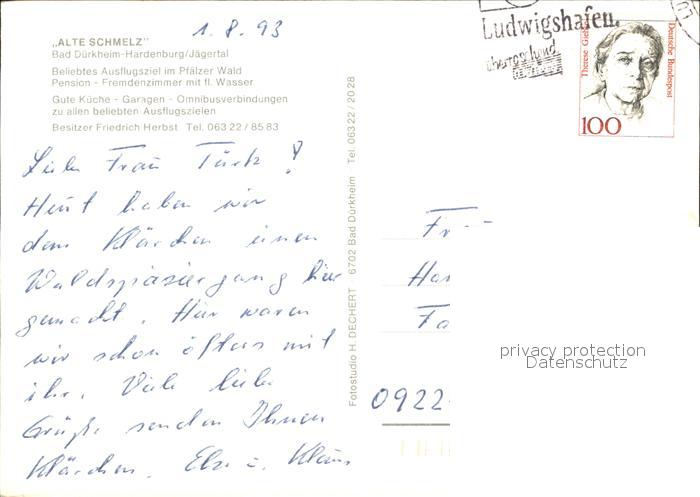 1.8.93
„ALTE SCHMELZ"
Bad Dürkheim-Hardenburg/Jägertal
Beliebtes Ausflugsziel im Pfälzer Wald
Pension - Fremdenzimmer mit fl. Wasser
Gute Küche - Garagen - Omnibusverbindungen
zu allen beliebten Ausflugszielen
Besitzer Friedrich Herbst Tel. 063 22 / 85 83
Liebe Frau Türk!
Heut haben wir
dem Klärchen einen
Waldspaziergang hier
gemacht. Hier waren
wir schon öfters mit
ihr. Viele liebe
Grüße senden Ihnen
Klärchen. Else u. Klaus
Fotostudio H. DECHERT 6702 Bad Dürkheim Tel. 063 22 / 20 28
Ludwigshafen.
überraschend
Deutsche Bundespost
Therese Gieh
100
Fr
Ha
Fa
0922
privacy protection
Datenschutz